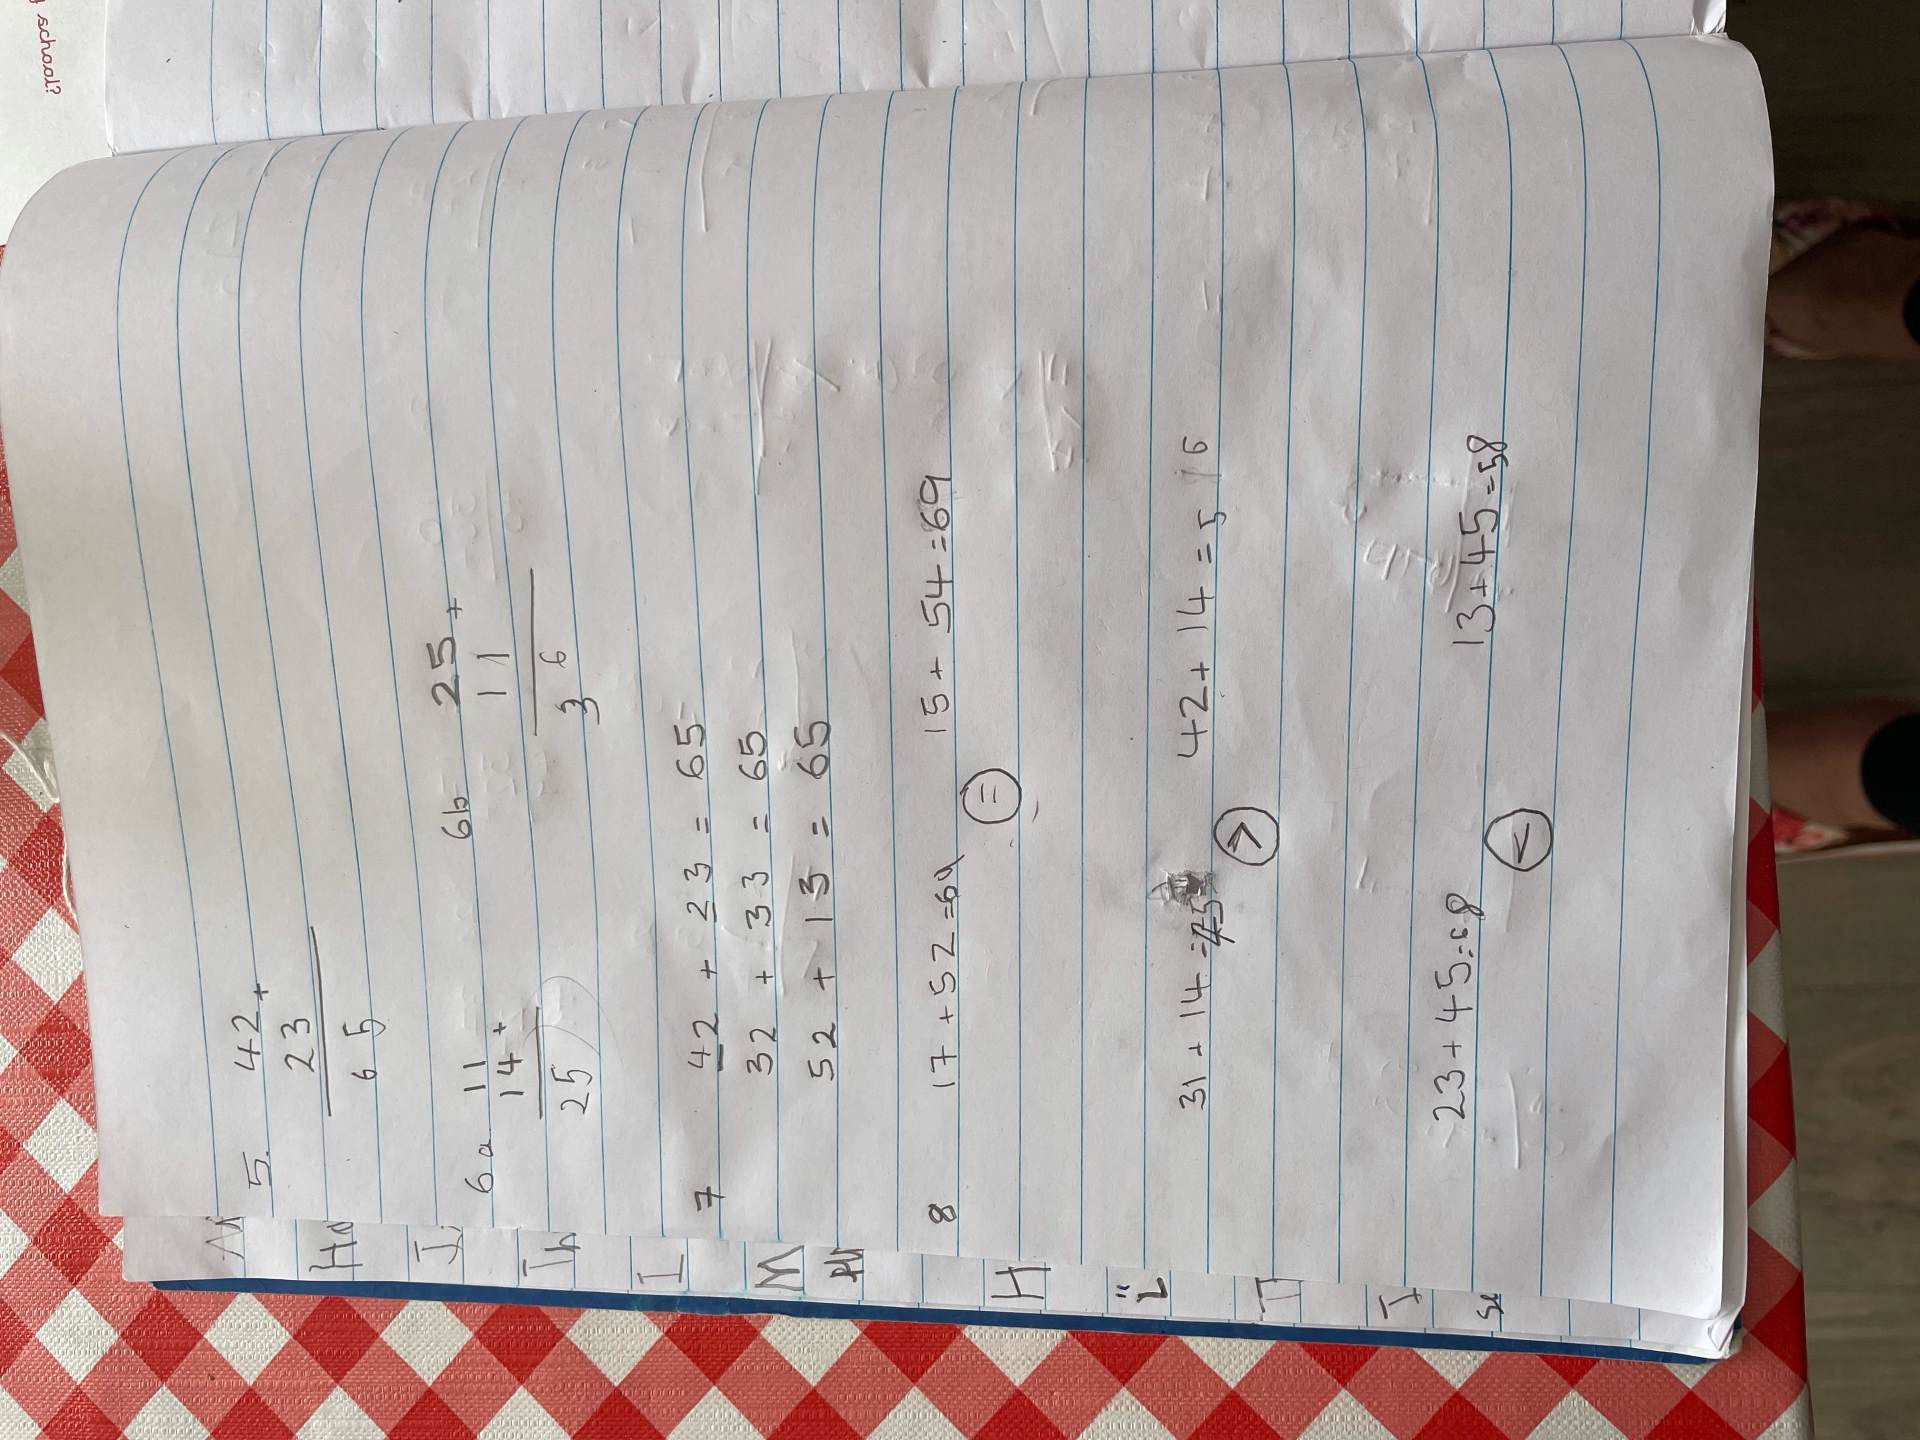 school?
5. 42 +
23
65
6a 11
14 +
25
6b 25 +
11
36
7 42 + 23 = 65
32 + 33 = 65
52 + 13 = 65
8 17 + 52 = 69 15 + 54 = 69
=
31 + 14 = 45 42 + 14 = 56
<
23 + 45 = 68 13 + 45 = 58
>
H
I
Th
I
M
H
L
T
I